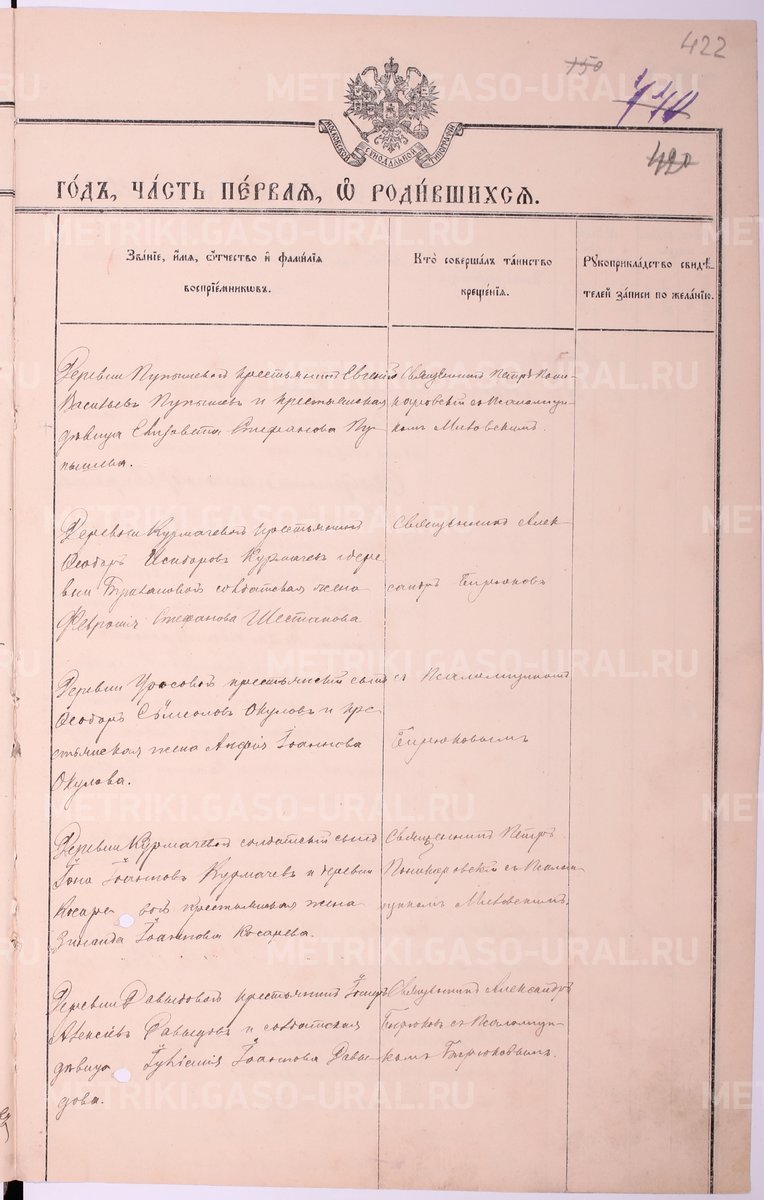 422
150
110
420
МОСКОВСКОЙ СѴНОДАЛЬНОЙ ТИПОГРАФІИ
ГО́ДЪ, ЧА́СТЬ ПЕ́РВАѦ, Ѿ РОДИ́ВШИХСѦ.
Зва́нїе, и҆́мѧ, ѻ҆́тчество и҆ фами́лїѧ
воспрїе́мникѡвъ.
Кто̀ соверша́лъ та́инство
креще́нїѧ.
Рꙋкоприкла́дство свидѣ́-
телей за́писи по жела́нїю.
Деревни Пупышевой крестьянинъ Евгений
Васильевъ Пупышевъ и крестьянская
дѣвица Елизавета Стефанова Пу-
пышева.
Священникъ Петръ Пони-
каровскій съ Псаломщи-
комъ Митовскимъ.
Деревни Курмачевой крестьянинъ
Ѳеодоръ Исидоровъ Курмачевъ и дере-
вни солдатская жена
Феврония Стефанова Шестакова
Священникъ Алек-
сандръ Бирюковъ
Деревни крестьянскій сынъ
Ѳеодоръ Сѵмеоновъ Окуловъ и кре-
стьянская жена Іоаннова
Окулова.
съ Псаломщикомъ
Бирюковымъ
Деревни Курмачевой солдатскій сынъ
Іона Іоанновъ Курмачевъ и деревни
Косаревой крестьянская жена
Зинаида Іоаннова Косарева.
Священникъ Петръ
Поникаровскій съ Псалом-
щикомъ Митовскимъ
Деревни Давыдовой крестьянинъ
Алексіевъ Давыдовъ и солдатская
дѣвица Іоаннова Давы-
дова.
Священникъ Александръ
Бирюковъ съ Псаломщи-
комъ Бирюковымъ.
METRIKI.GASO-URAL.RU